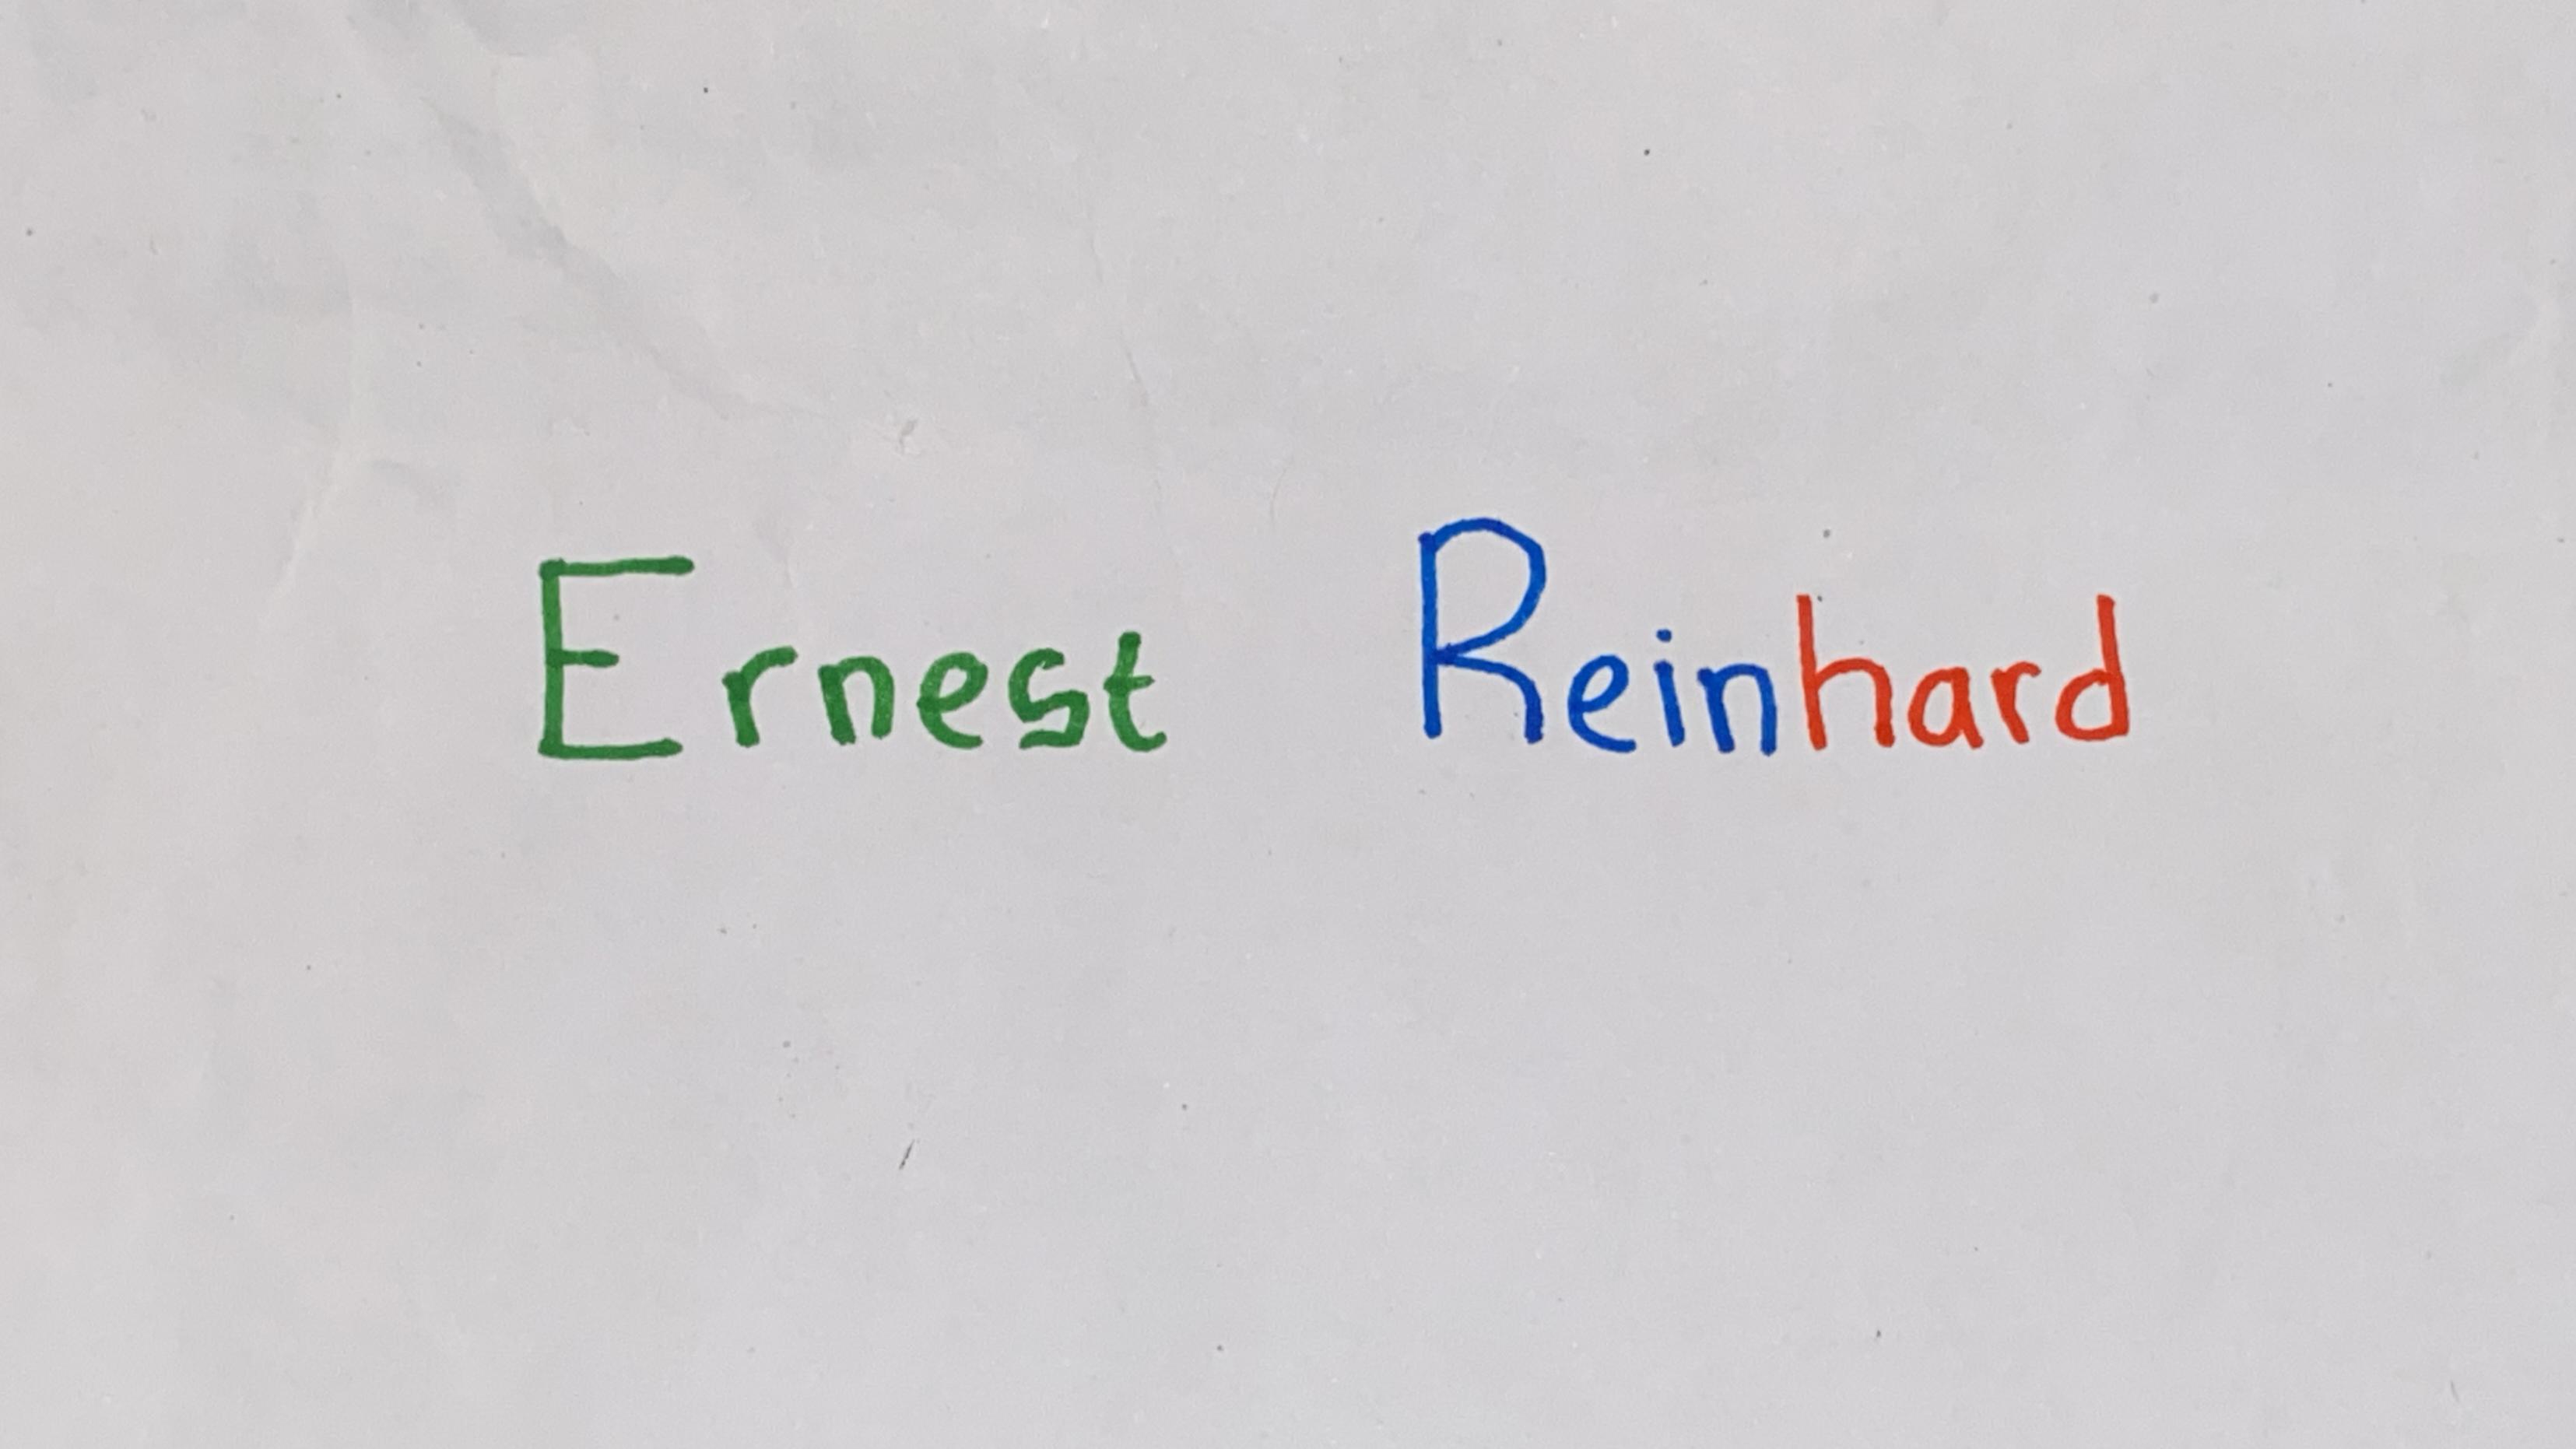 Ernest Reinhard